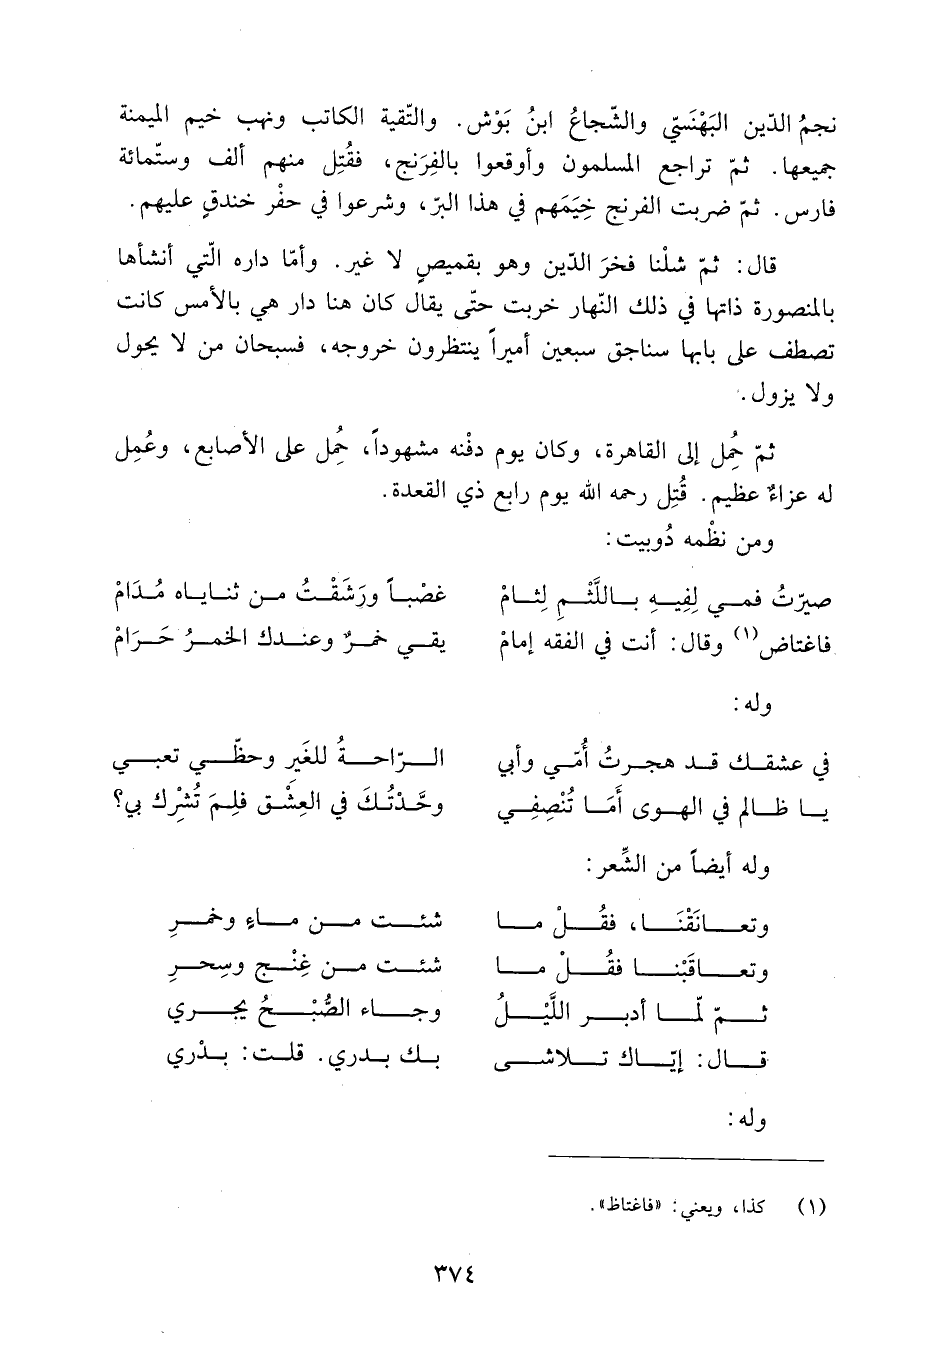 نجمُ الدّين البَهْنَسيّ والشّجاعُ ابنُ بَوْش. والتّقية الكاتب ونهب خيم الميمنة
جميعها. ثمّ تراجع المسلمون وأوقعوا بالفِرَنج، فقُتِل منهم ألف وستّمائة
فارس. ثمّ ضربت الفرنج خِيَمَهم في هذا البرّ، وشرعوا في حفْر خندقٍ عليهم.
قال: ثمّ شلْنا فخرَ الدّين وهو بقميصٍ لا غير. وأمّا داره الّتي أنشأها
بالمنصورة ذاتها في ذلك النّهار خربت حتّى يقال كان هنا دار هي بالأمس كانت
تصطف على بابها سناجق سبعين أميراً ينتظرون خروجه، فسبحان من لا يحول
ولا يزول.
ثمّ حُمِل إلى القاهرة، وكان يوم دفْنه مشهوداً، حُمِل على الأصابع، وعُمِل
له عزاءٌ عظيم. قُتِل رحمه الله يوم رابع ذي القعدة.
ومن نظْمه دُوبيت:
صيرّتُ فمي لِفِيهِ باللَّثْمِ لِثامْ غصْباً ورَشَفْتُ من ثناياه مُدَامْ
فاغتاض(١) وقال: أنت في الفقه إمامْ يقي خمرٌ وعندك الخمرُ حَرَامْ
وله:
في عشقك قد هجرتُ أُمّي وأبي الرّاحةُ للغَير وحظّي تعبي
يا ظالم في الهوى أَمَا تُنْصِفي وحَّدْتُكَ في العِشْق فلِم تُشْرِك بي؟
وله أيضاً من الشِّعر:
وتعانَقْنَا، فقُلْ ما شئت من ماءٍ وخمرِ
وتعاقَبْنا فقُلْ ما شئت من غِنْجٍ وسِحرِ
ثمّ لمّا أدبر اللَّيْلُ وجاء الصُّبْحُ يجري
قال: إيّاك تلاشى بك بدري. قلت: بدْري
وله:
(١) كذا، ويعني: «فاغتاظ».
٣٧٤